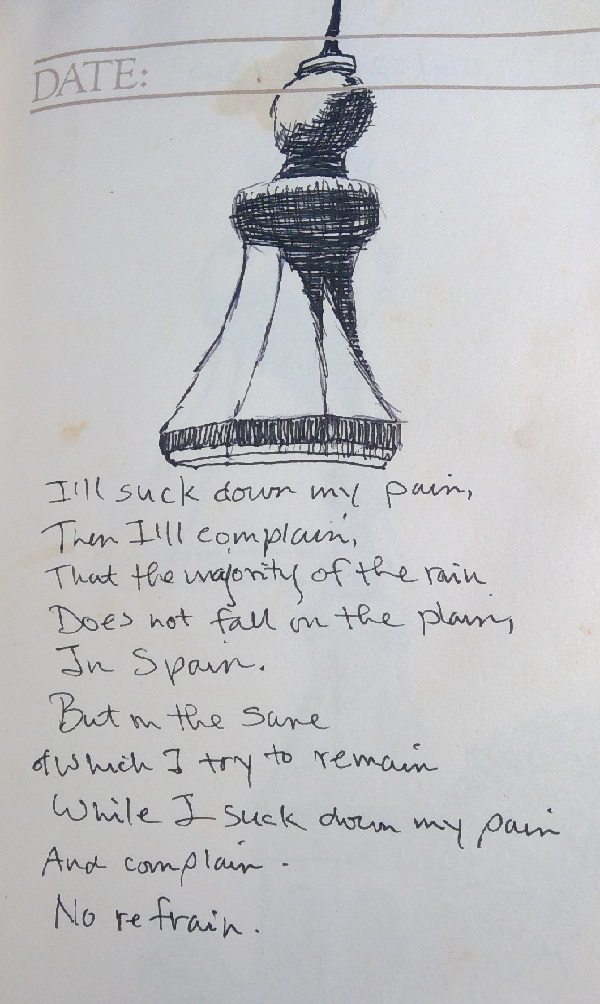 DATE:
I'll suck down my pain,
Then I'll complain,
That the majority of the rain
Does not fall on the plain,
In Spain.
But on the sane
of which I try to remain
While I suck down my pain
And complain.
No refrain.